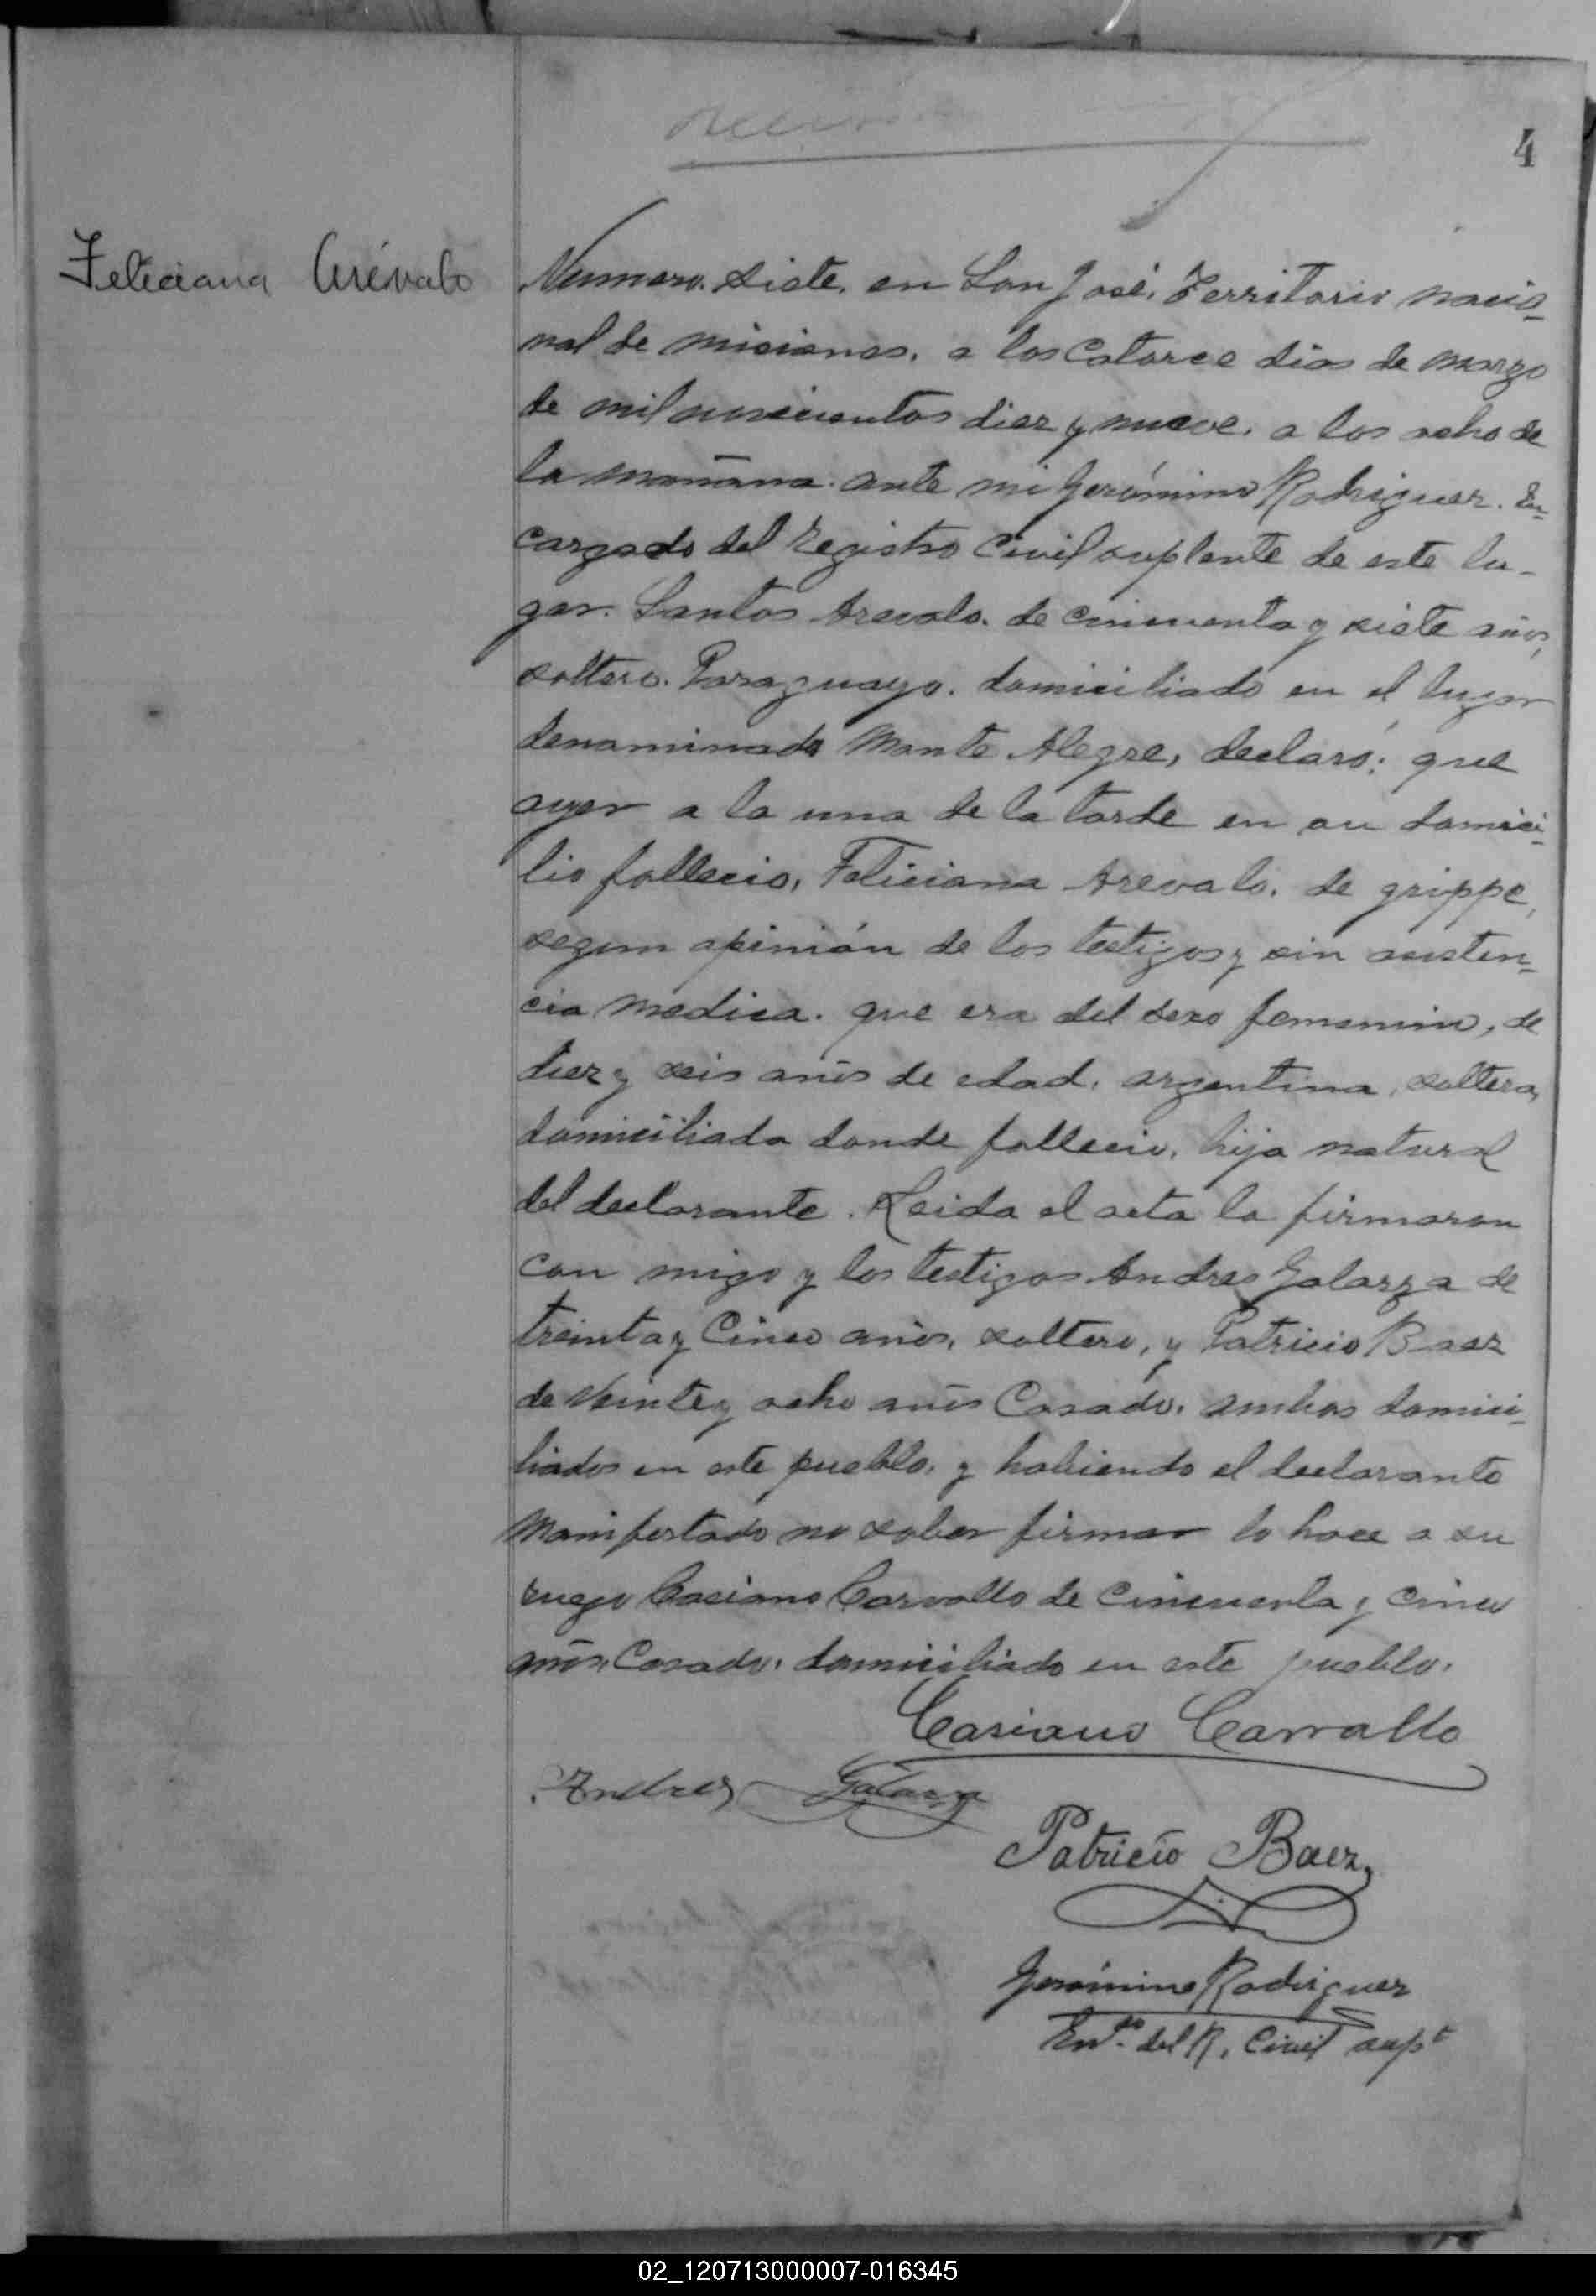 4
Feliciana Arévalo
Numero. Siete. en San José, Territorio nacio-
nal de misiones. a los catorce dias de marzo
de mil novecientos diez y nueve. a las ocho de
la mañana. ante mi Gerónimo Rodriguez. En-
cargado del Registro Civil suplente de este lu-
gar. Santos Arevalo. de cincuenta y siete años,
soltero. Paraguayo. domiciliado en el lugar
denominado Monte Alegre, declaró: que
ayer a la una de la tarde en su domici-
lio fallecio, Feliciana Arevalo. de grippe,
segun opinión de los testigos y sin asisten-
cia medica. que era del sexo femenino, de
diez y seis años de edad. argentina, soltera,
domiciliada donde fallecio, hija natural
del declarante. Leida el acta la firmaron
con migo y los testigos Andres Galarza de
treinta y Cinco años, soltero, y Patricio Baez
de Veinte y ocho años Casado. ambos domici-
liados en este pueblo. y habiendo el declarante
manifestado no saber firmar lo hace a su
ruego Casiano Carvallo de Cincuenta y cinco
años, Casado. domiciliado en este pueblo.
Casiano Carvallo
Andres Galarza
Patricio Baez
Gerónimo Rodriguez
Endo. del R. Civil supt
02_120713000007-016345